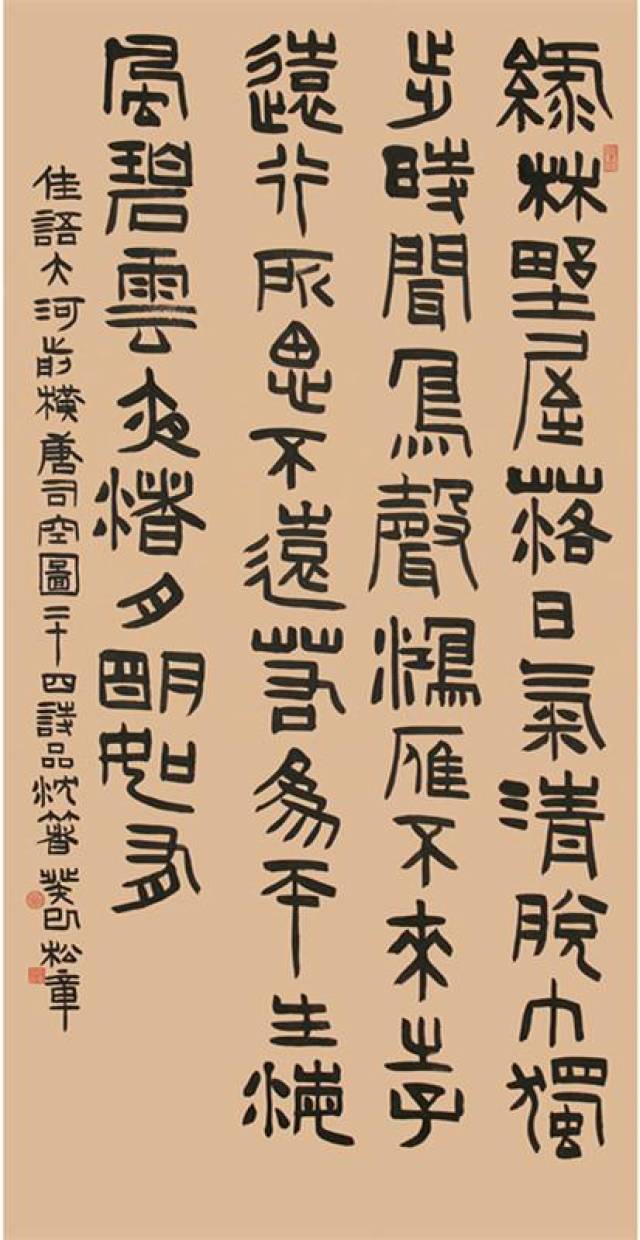 綠林野屋落日氣清脫巾獨
步時聞鳥聲鴻雁不來之子
遠行所思不遠若為平生海
風碧雲夜渚月明如有
佳語大河前橫唐司空圖二十四詩品沈著 癸巳松章